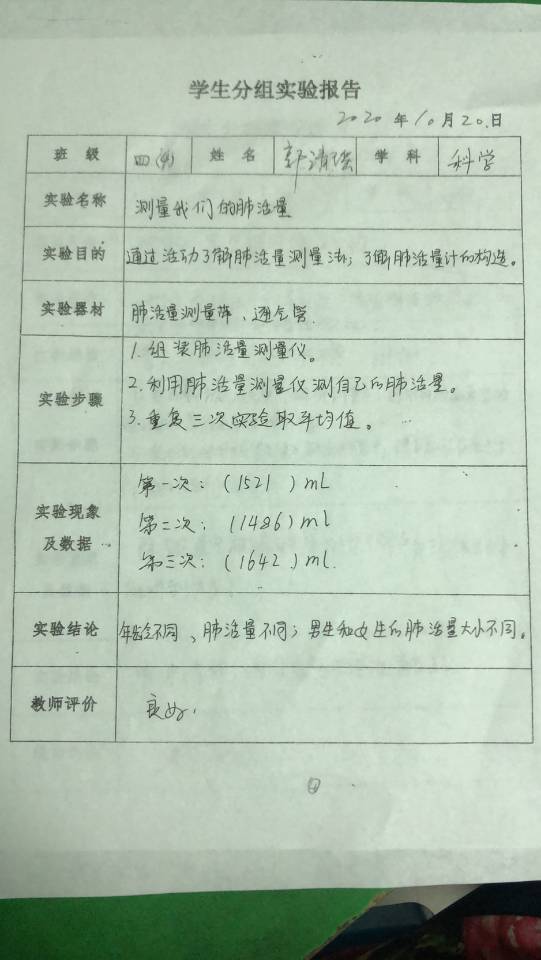 学生分组实验报告
2020年10月20日
班级 四(4) 姓名 学科 科学
实验名称 测量我们的肺活量
实验目的 通过活动了解肺活量测量法；了解肺活量计的构造。
实验器材 肺活量测量、通气管.
实验步骤
1.组装肺活量测量仪。
2.利用肺活量测量仪测自己的肺活量。
3.重复三次实验取平均值。
实验现象
及数据
第一次：(1521 )mL
第二次；(1486)ml
第三次：(1642 )ml.
实验结论 年龄不同、肺活量不同；男生和女生的肺活量大小不同。
教师评价 良好.